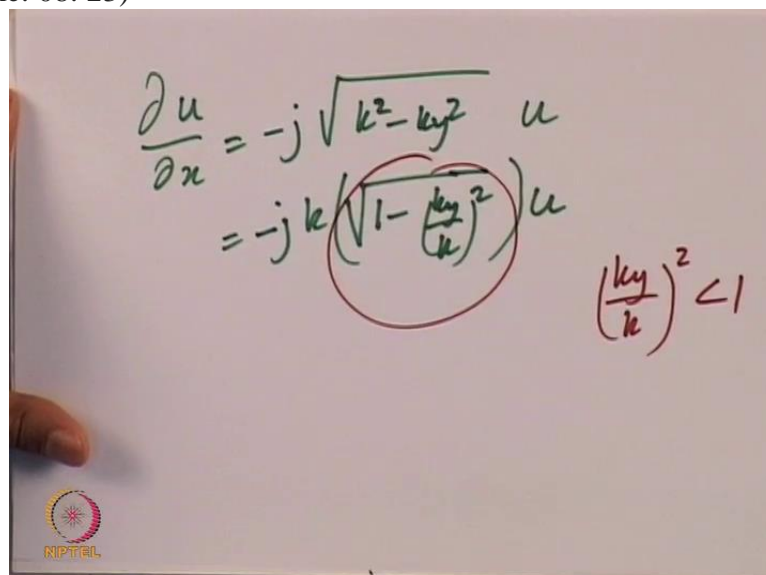 ∂u/∂x = -j √(k² - ky²) u
= -j k (√(1 - (ky/k)²)) u
(ky/k)² < 1
NPTEL